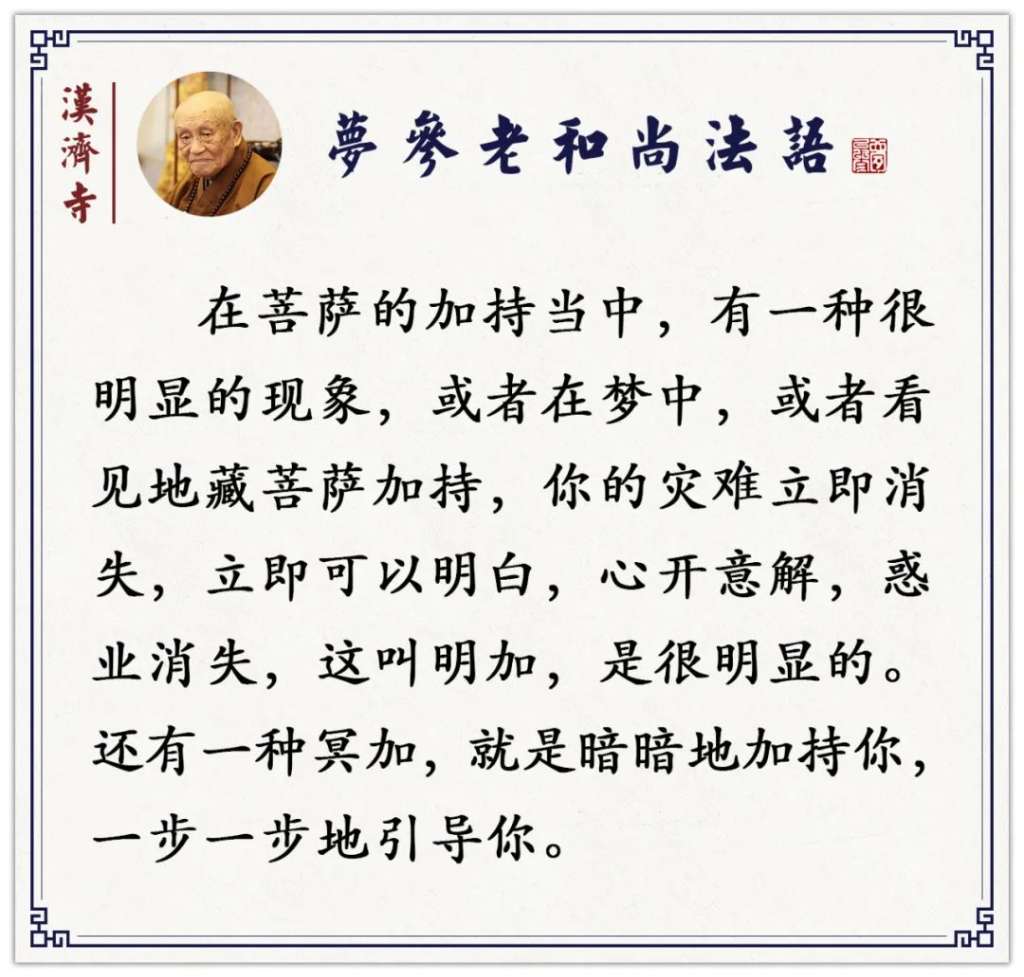 漢濟寺
夢參老和尚法語
在菩萨的加持当中，有一种很
明显的现象，或者在梦中，或者看
见地藏菩萨加持，你的灾难立即消
失，立即可以明白，心开意解，惑
业消失，这叫明加，是很明显的。
还有一种冥加，就是暗暗地加持你，
一步一步地引导你。